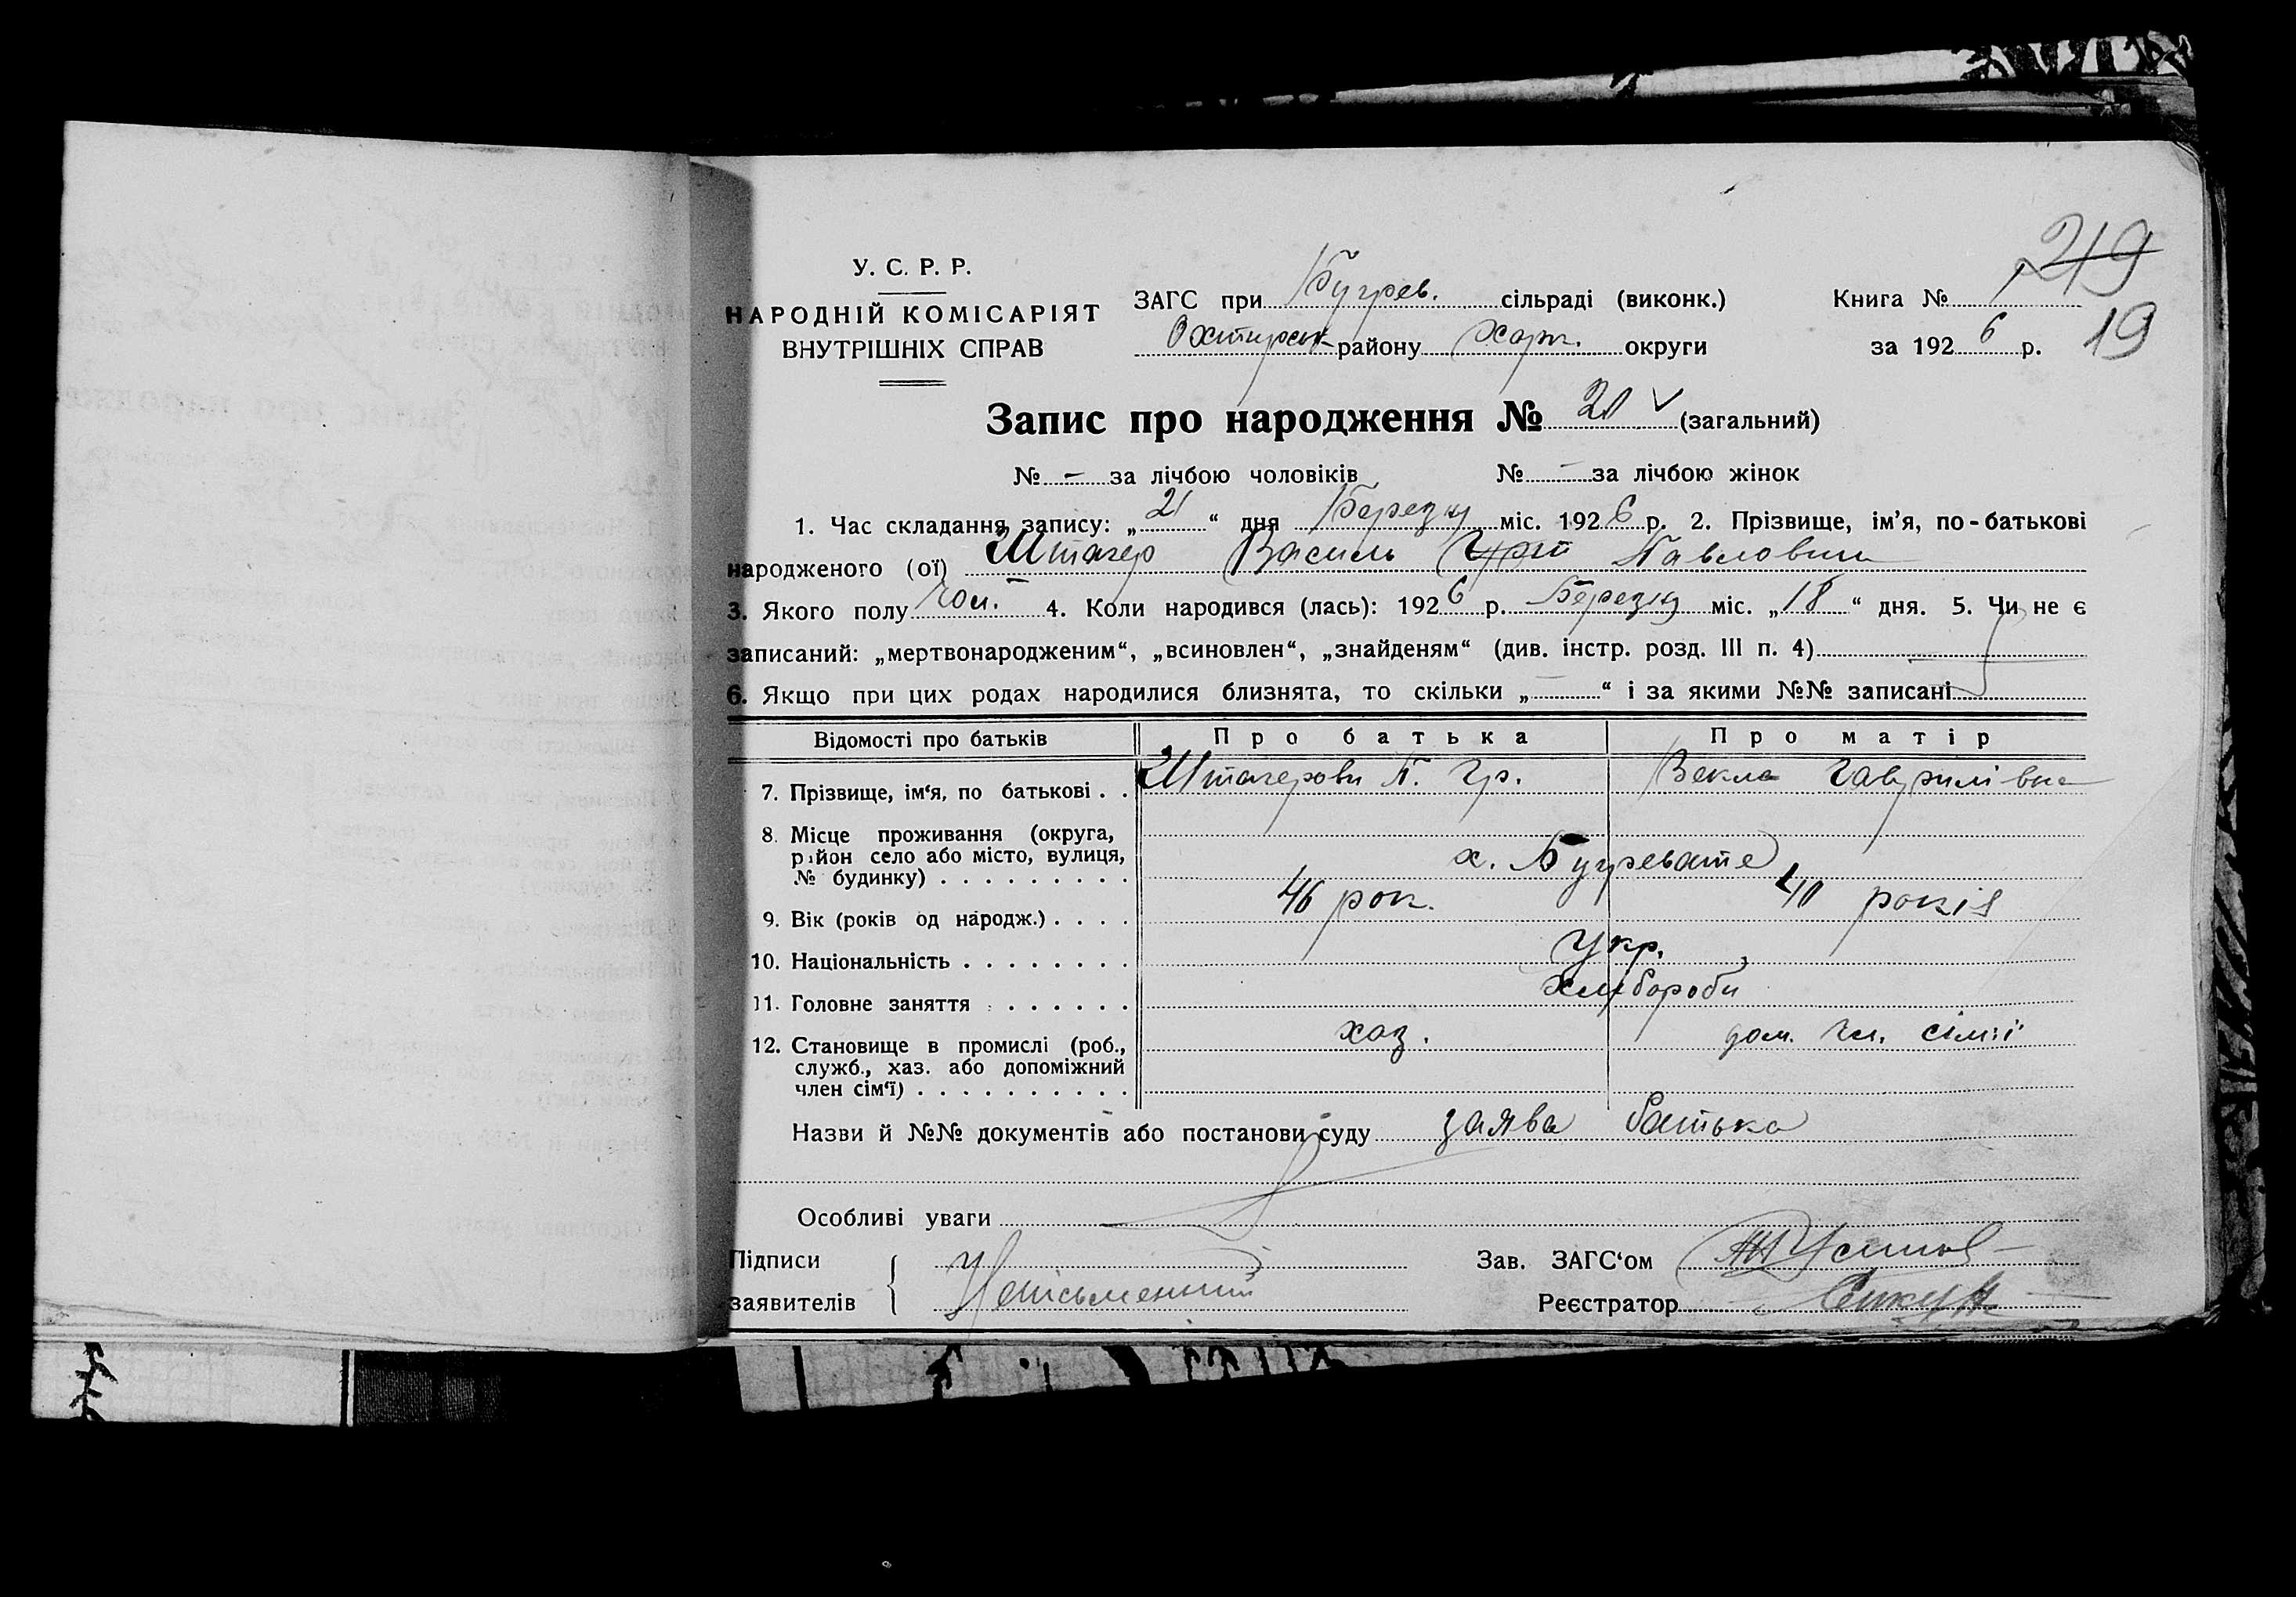 219
У. С. Р. Р.
НАРОДНІЙ КОМІСАРІЯТ
ВНУТРІШНІХ СПРАВ
ЗАГС при Бугрев. сільраді (виконк.)
Охтирськ району Харк. округи
Книга №
за 1926 р. 19
Запис про народження № 20 (загальний)
№ - за лічбою чоловіків № - за лічбою жінок
1. Час складання запису: „21“ дня Березня міс. 1926 р. 2. Прізвище, ім’я, по-батькові
народженого (ої) Штагер Василь Павлович
3. Якого полу чол. 4. Коли народився (лась): 1926 р. Березня міс. „18“ дня. 5. Чи не є
записаний: „мертвонародженим“, „всиновлен“, „знайденям“ (див. інстр. розд. III п. 4)
6. Якщо при цих родах народилися близнята, то скільки „ “ і за якими №№ записані
Відомості про батьків Про батька Про матір
7. Прізвище, ім‘я, по батькові . . Штагерови П. Гр. Векла Гаврилівна
8. Місце проживання (округа,
район село або місто, вулиця,
№ будинку) . . . . . . . . . х. Бугревате
9. Вік (років од народж.) . . . . 46 рок. 40 років
10. Національність . . . . . . . . Укр.
11. Головне заняття . . . . . . . Хлібороби
12. Становище в промислі (роб., хаз. дом. чл. сімї
служб., хаз. або допоміжний
член сім‘ї) . . . . . . . . . .
Назви й №№ документів або постанови суду заява батька
Особливі уваги
Підписи
заявителів Неписьменний
Зав. ЗАГС‘ом
Реєстратор